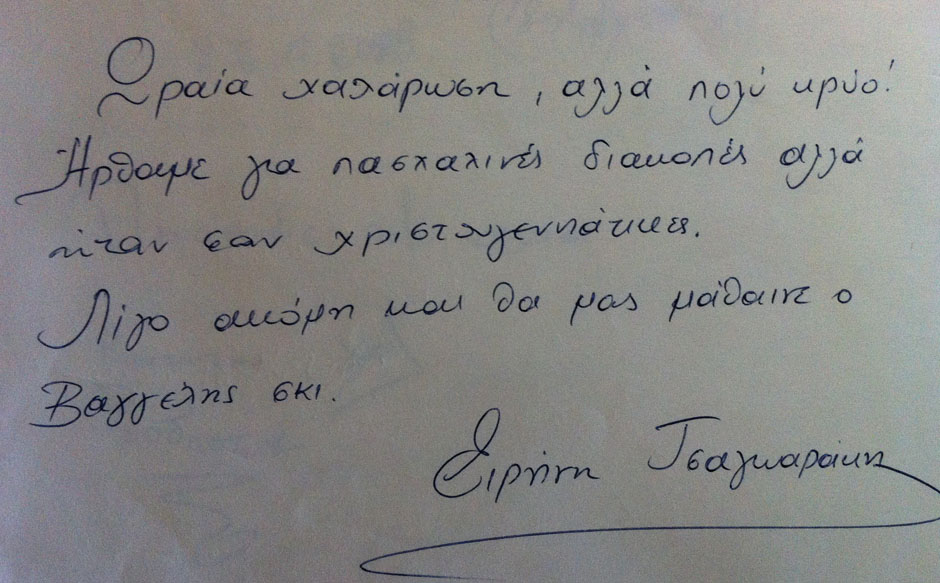 Ωραία χαλάρωση, αλλά πολύ κρύο!
Ήρθαμε για πασχαλινές διακοπές αλλά
ήταν σαν χριστουγεννιάτικες.
Λίγο ακόμη και θα μας μάθαινε ο
Βαγγέλης σκι.
Ειρήνη Τσαγκαράκη